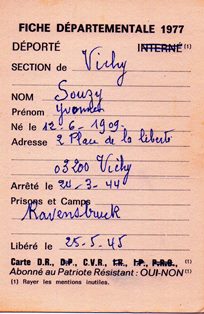 FICHE DÉPARTEMENTALE 1977
DÉPORTÉ INTERNÉ (1)
SECTION de Vichy
NOM Souzy
Prénom Yvonne
Né le 12-6-1909.
Adresse 2 Place de la liberté
03200 Vichy
Arrêté le 24-3-44
Prisons et Camps
Ravensbruck
Libéré le 25.5.45
Carte D.R., D.P., C.V.R., I.R., I.P., P.R.O., (1)
Abonné au Patriote Résistant : OUI-NON (1)
(1) Rayer les mentions inutiles.